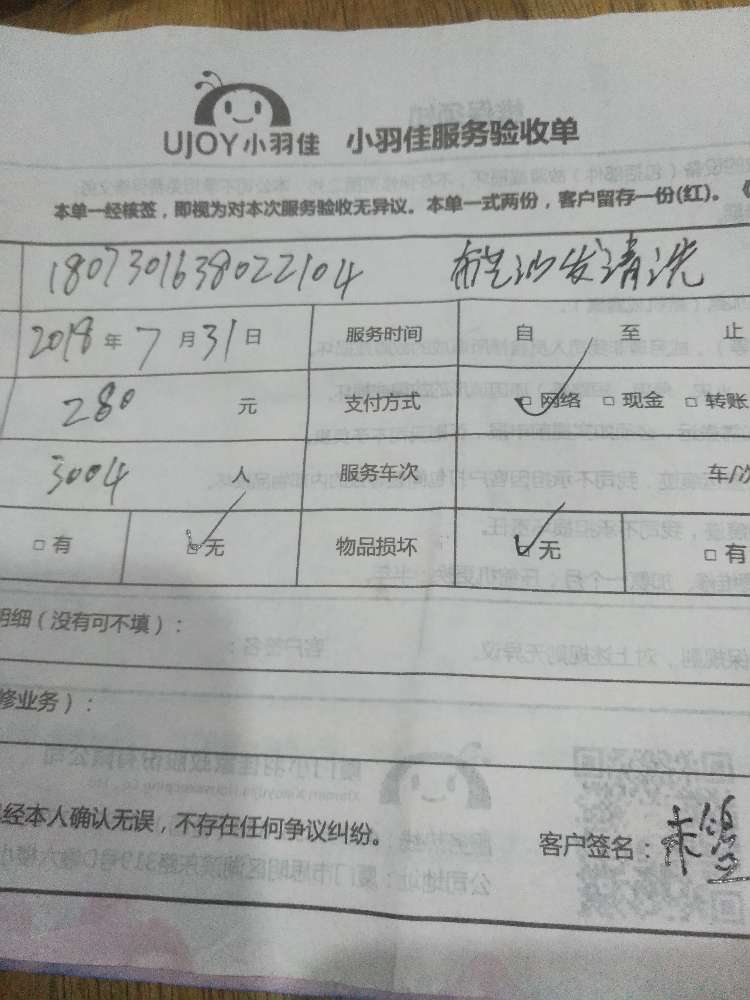 UJOY小羽佳 小羽佳服务验收单
本单一经核签，即视为对本次服务验收无异议。本单一式两份，客户留存一份(红)。
1807301638022104 布艺沙发清洗
2018年7月31日 服务时间 自 至 止
280 元 支付方式 □网络 □现金 □转账
3004 人 服务车次 车/次
□有 □无 物品损坏 □无 □有
明细（没有可不填）：
修业务）：
经本人确认无误，不存在任何争议纠纷。
客户签名：